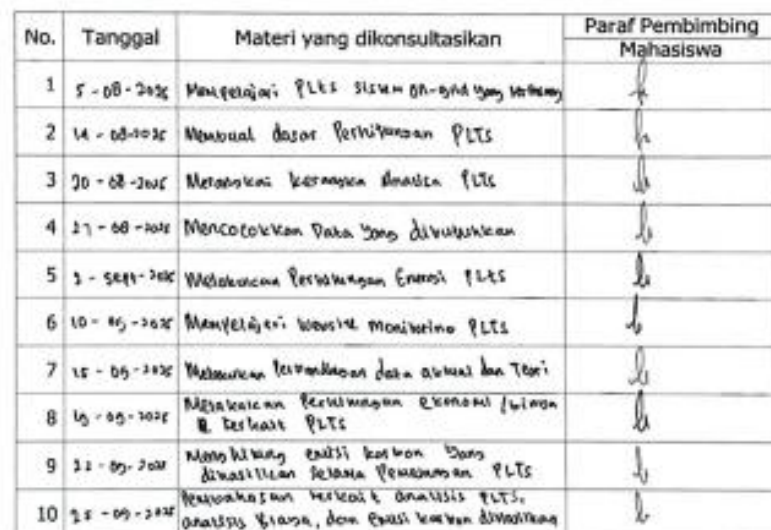 No. Tanggal Materi yang dikonsultasikan Paraf Pembimbing
Mahasiswa
1 5-08-2025 Mempelajari PLTS sistem on-grid yang
2 14-08-2025 Membuat dasar Perhitungan PLTS
3 20-08-2025 Merangkai kerangka Analisa PLTS
4 27-08-2025 Mencocokkan Data yang dibutuhkan
5 2-Sept-2025 Melakukan Perhitungan Energi PLTS
6 10-09-2025 Mempelajari website monitoring PLTS
7 15-09-2025 Melakukan Perbandingan data aktual dan Teori
8 19-09-2025 Melakukan Perhitungan ekonomi /
terkait PLTS
9 22-09-2025 Menghitung emisi karbon yang
dihasilkan selama PLTS
10 25-09-2025 Pembahasan terkait analisis PLTS,
analisis biaya, dan emisi karbon dihasilkan